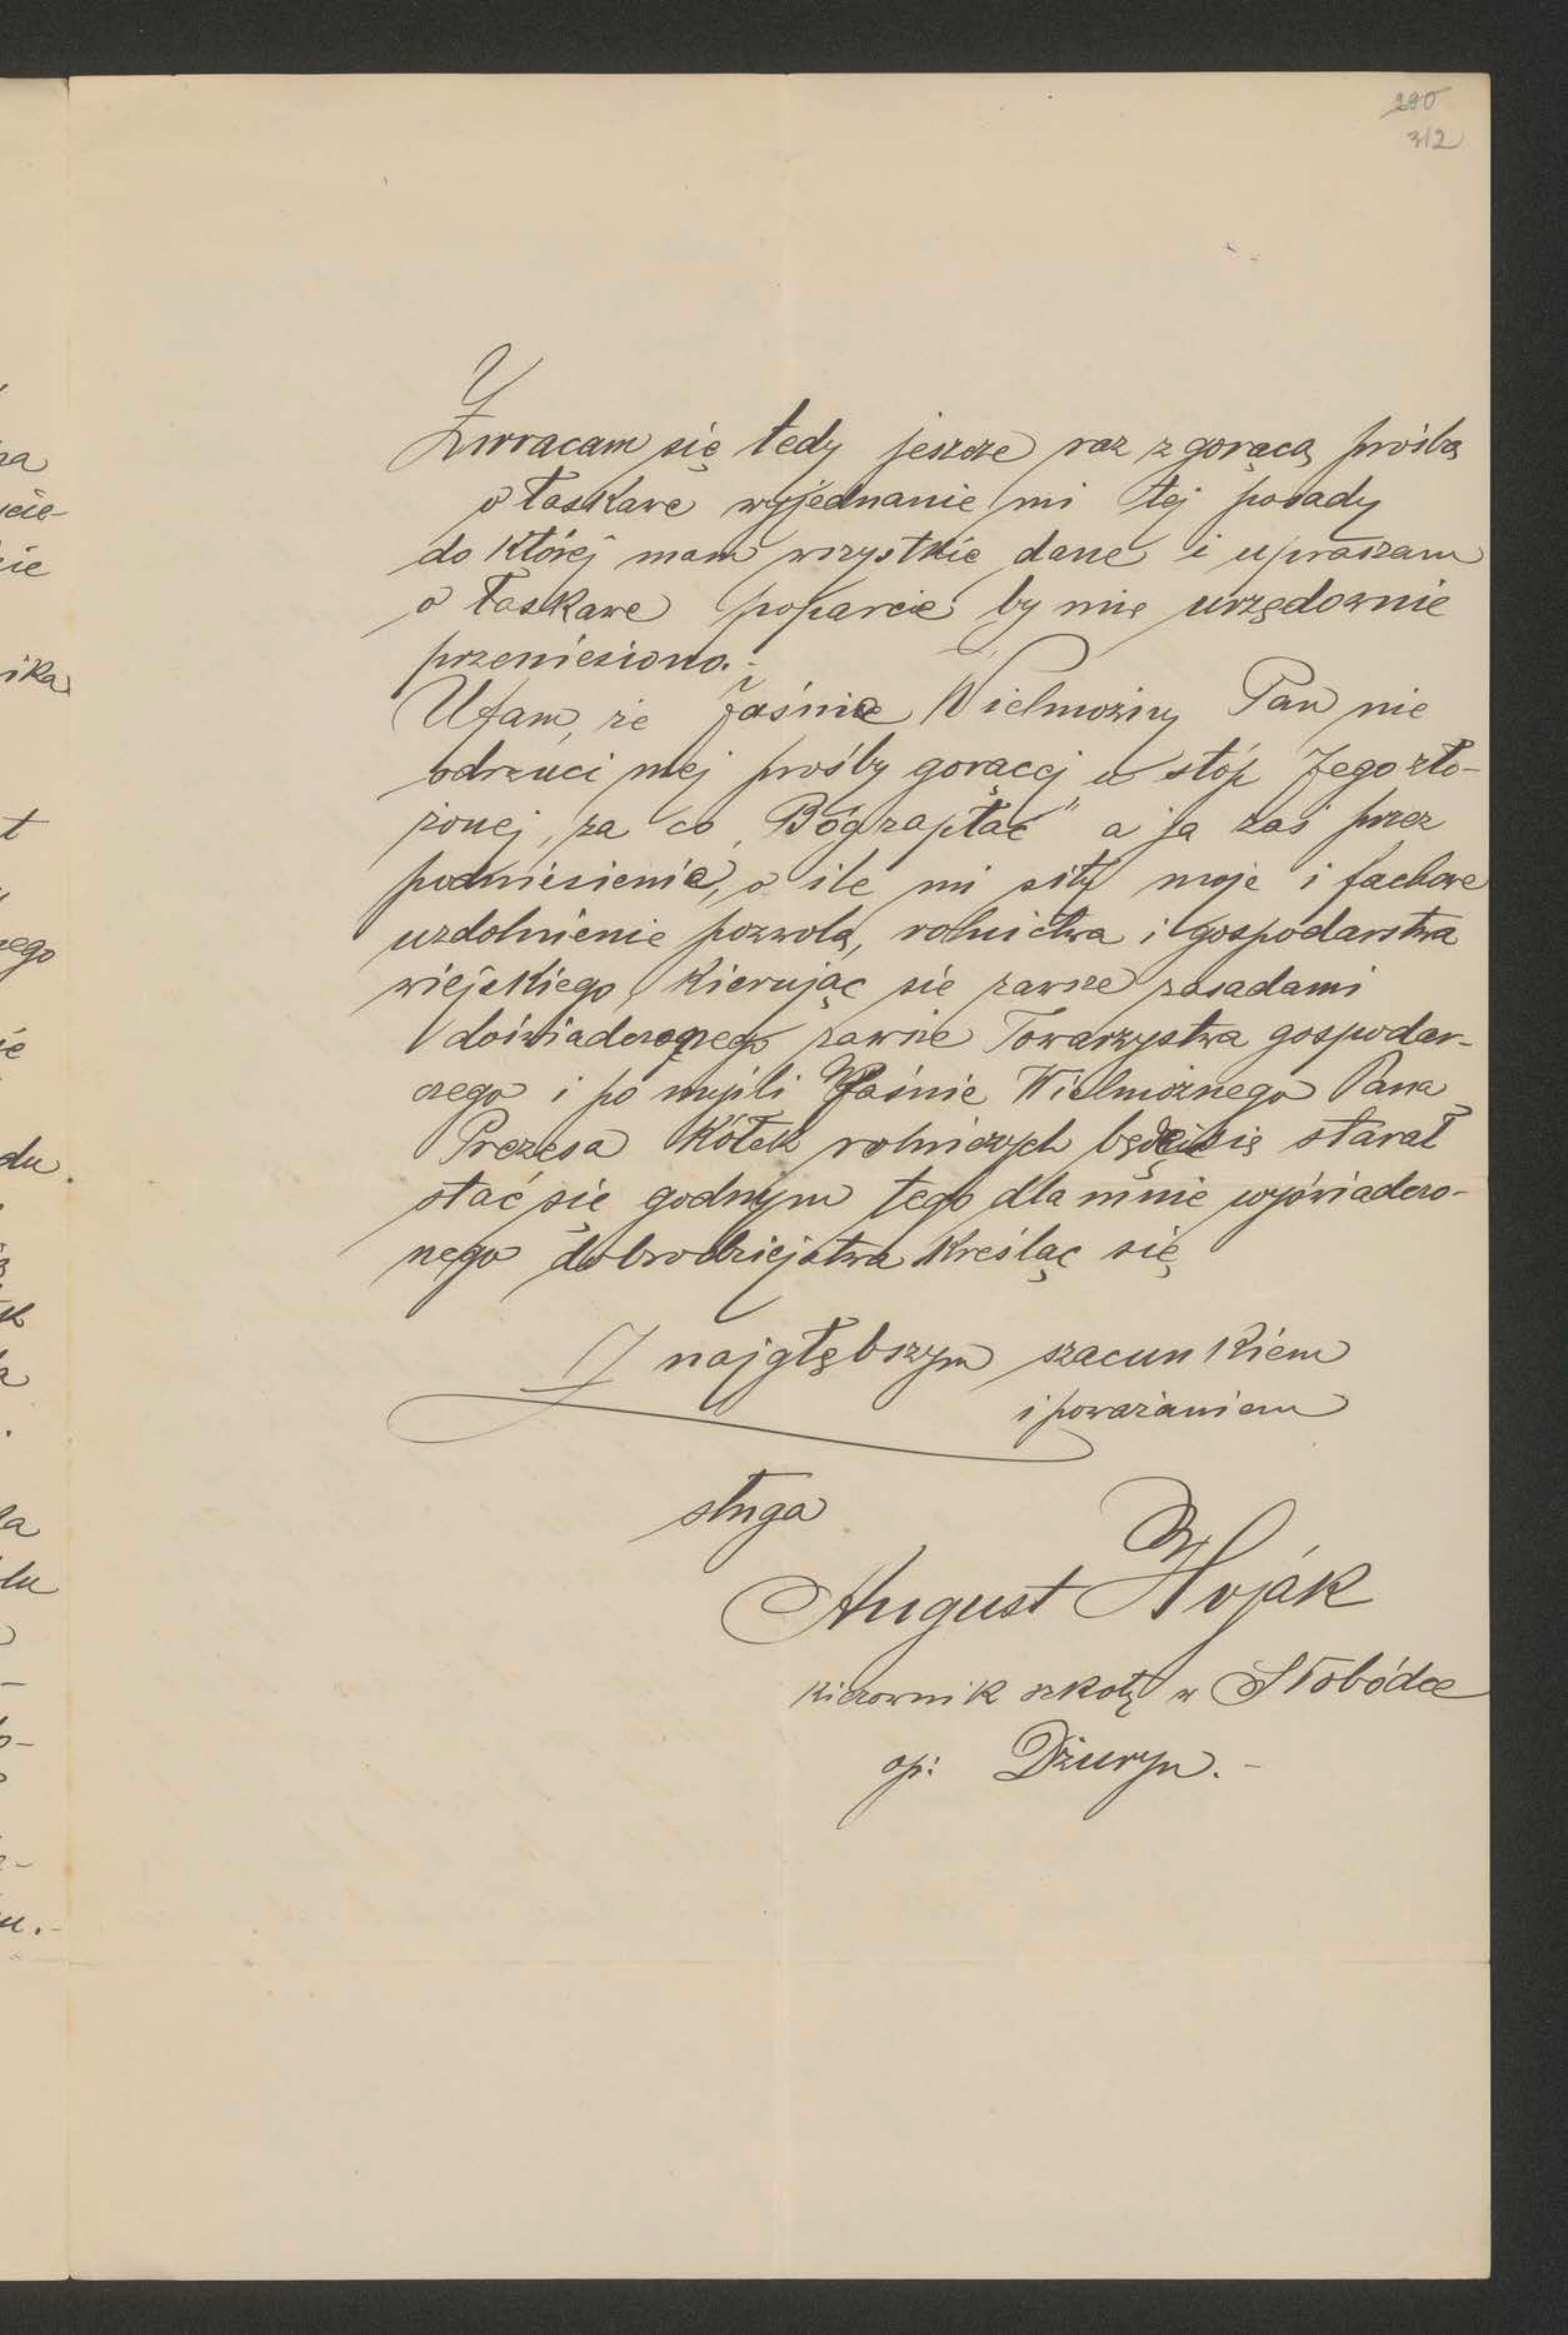 290
312
Zwracam się tedy jeszcze raz z gorącą prośbą
o łaskawe wyjednanie mi tej posady
do której mam wszystkie dane i upraszam
o łaskawe poparcie by mię urzędownie
przeniesiono.-
Ufam, że Jaśnie Wielmożny Pan nie
odrzuci mej prośby gorącej u stóp Jego zło-
żonej, za co „Bóg zapłać" a ja zaś przez
podniesienie, o ile mi siły moje i fachowe
uzdolnienie pozwolą, rolnictwa i gospodarstwa
wiejskiego, kierując się zawsze zasadami
doświadczonego zawsze Towarzystwa gospodar-
czego i po myśli Jaśnie Wielmożnego Pana
Prezesa Kółek rolniczych będę się starał
stać się godnym tego dla mnie wyświadczo-
nego dobrodziejstwa kreśląc się
Z najgłębszym szacunkiem
i poważaniem
sługa
August Woják
kierownik szkoły w Słobódce
op: Dżuryn.-